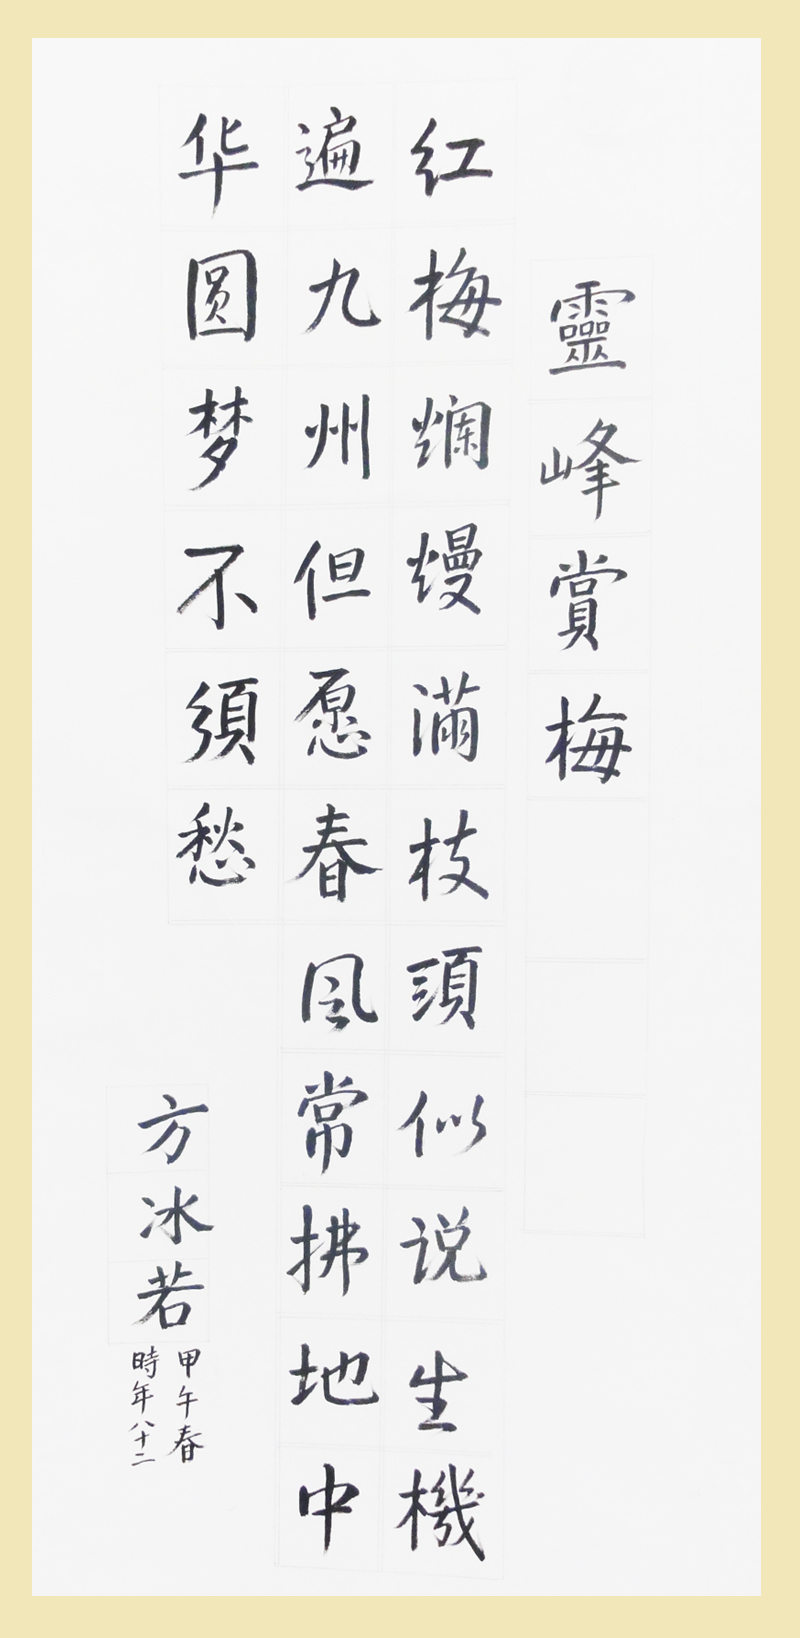 靈峰賞梅
红梅斕熳滿枝頭似说生機
遍九州但愿春风常拂地中
华圆梦不須愁
方冰若
甲午春
時年八十二